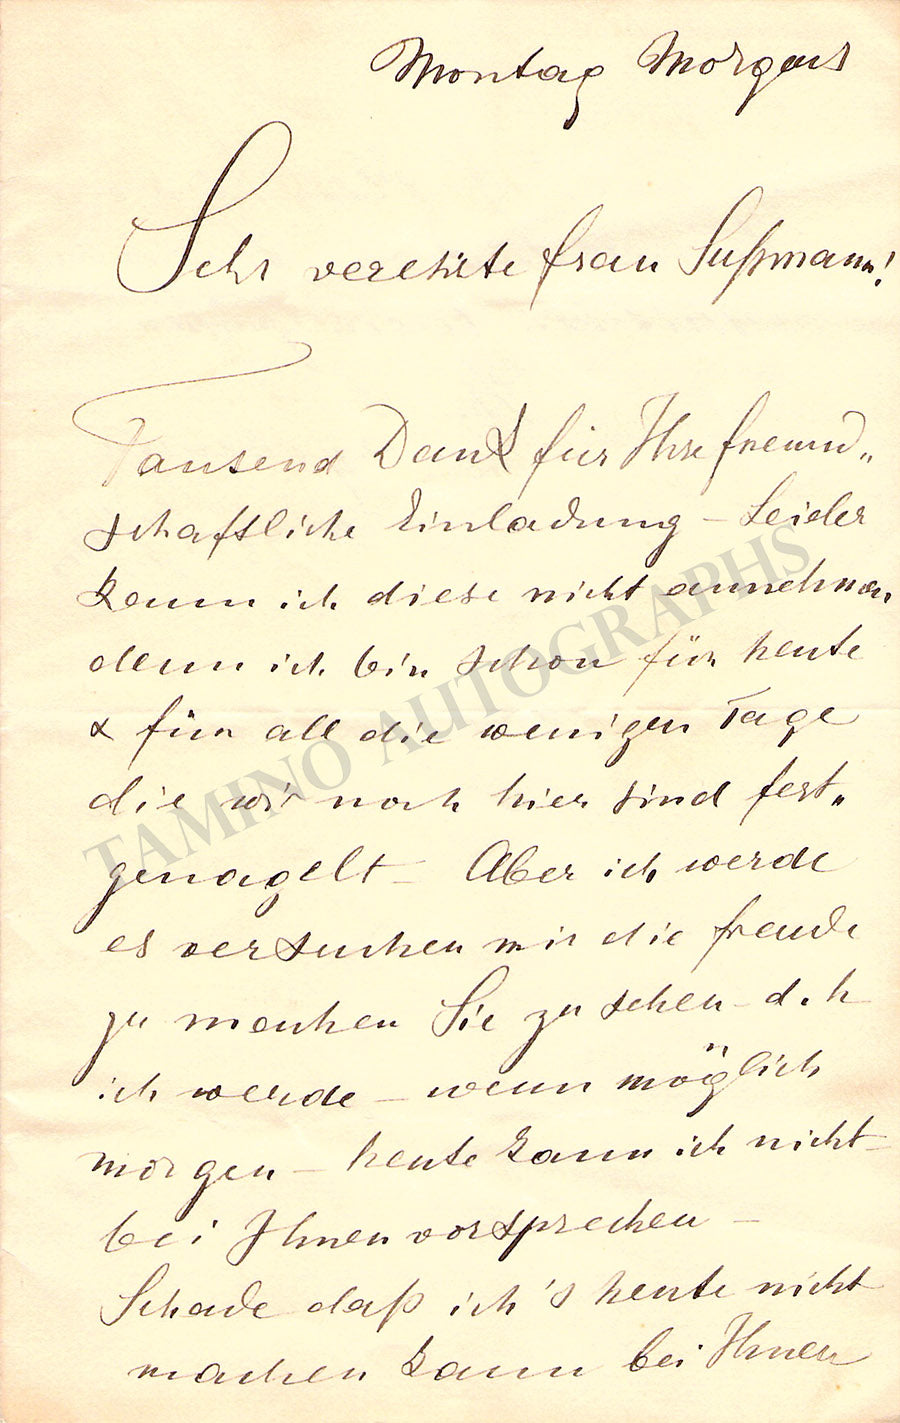 Montag Morgens
Sehr verehrte Frau Sußmann!
Tausend Dank für Ihre freund„
schaftliche Einladung – Leider
kann ich diese nicht annehmen
denn ich bin schon für heute
& für all die wenigen Tage
die wir noch hier sind fest„
genagelt – Aber ich werde
es versuchen mir die Freude
zu machen Sie zu sehen – d. h
ich werde – wenn möglich
morgen – heute kann ich nicht –
bei Ihnen vorsprechen –
Schade daß ich's heute nicht
machen kann bei Ihnen
TAMINO AUTOGRAPHS